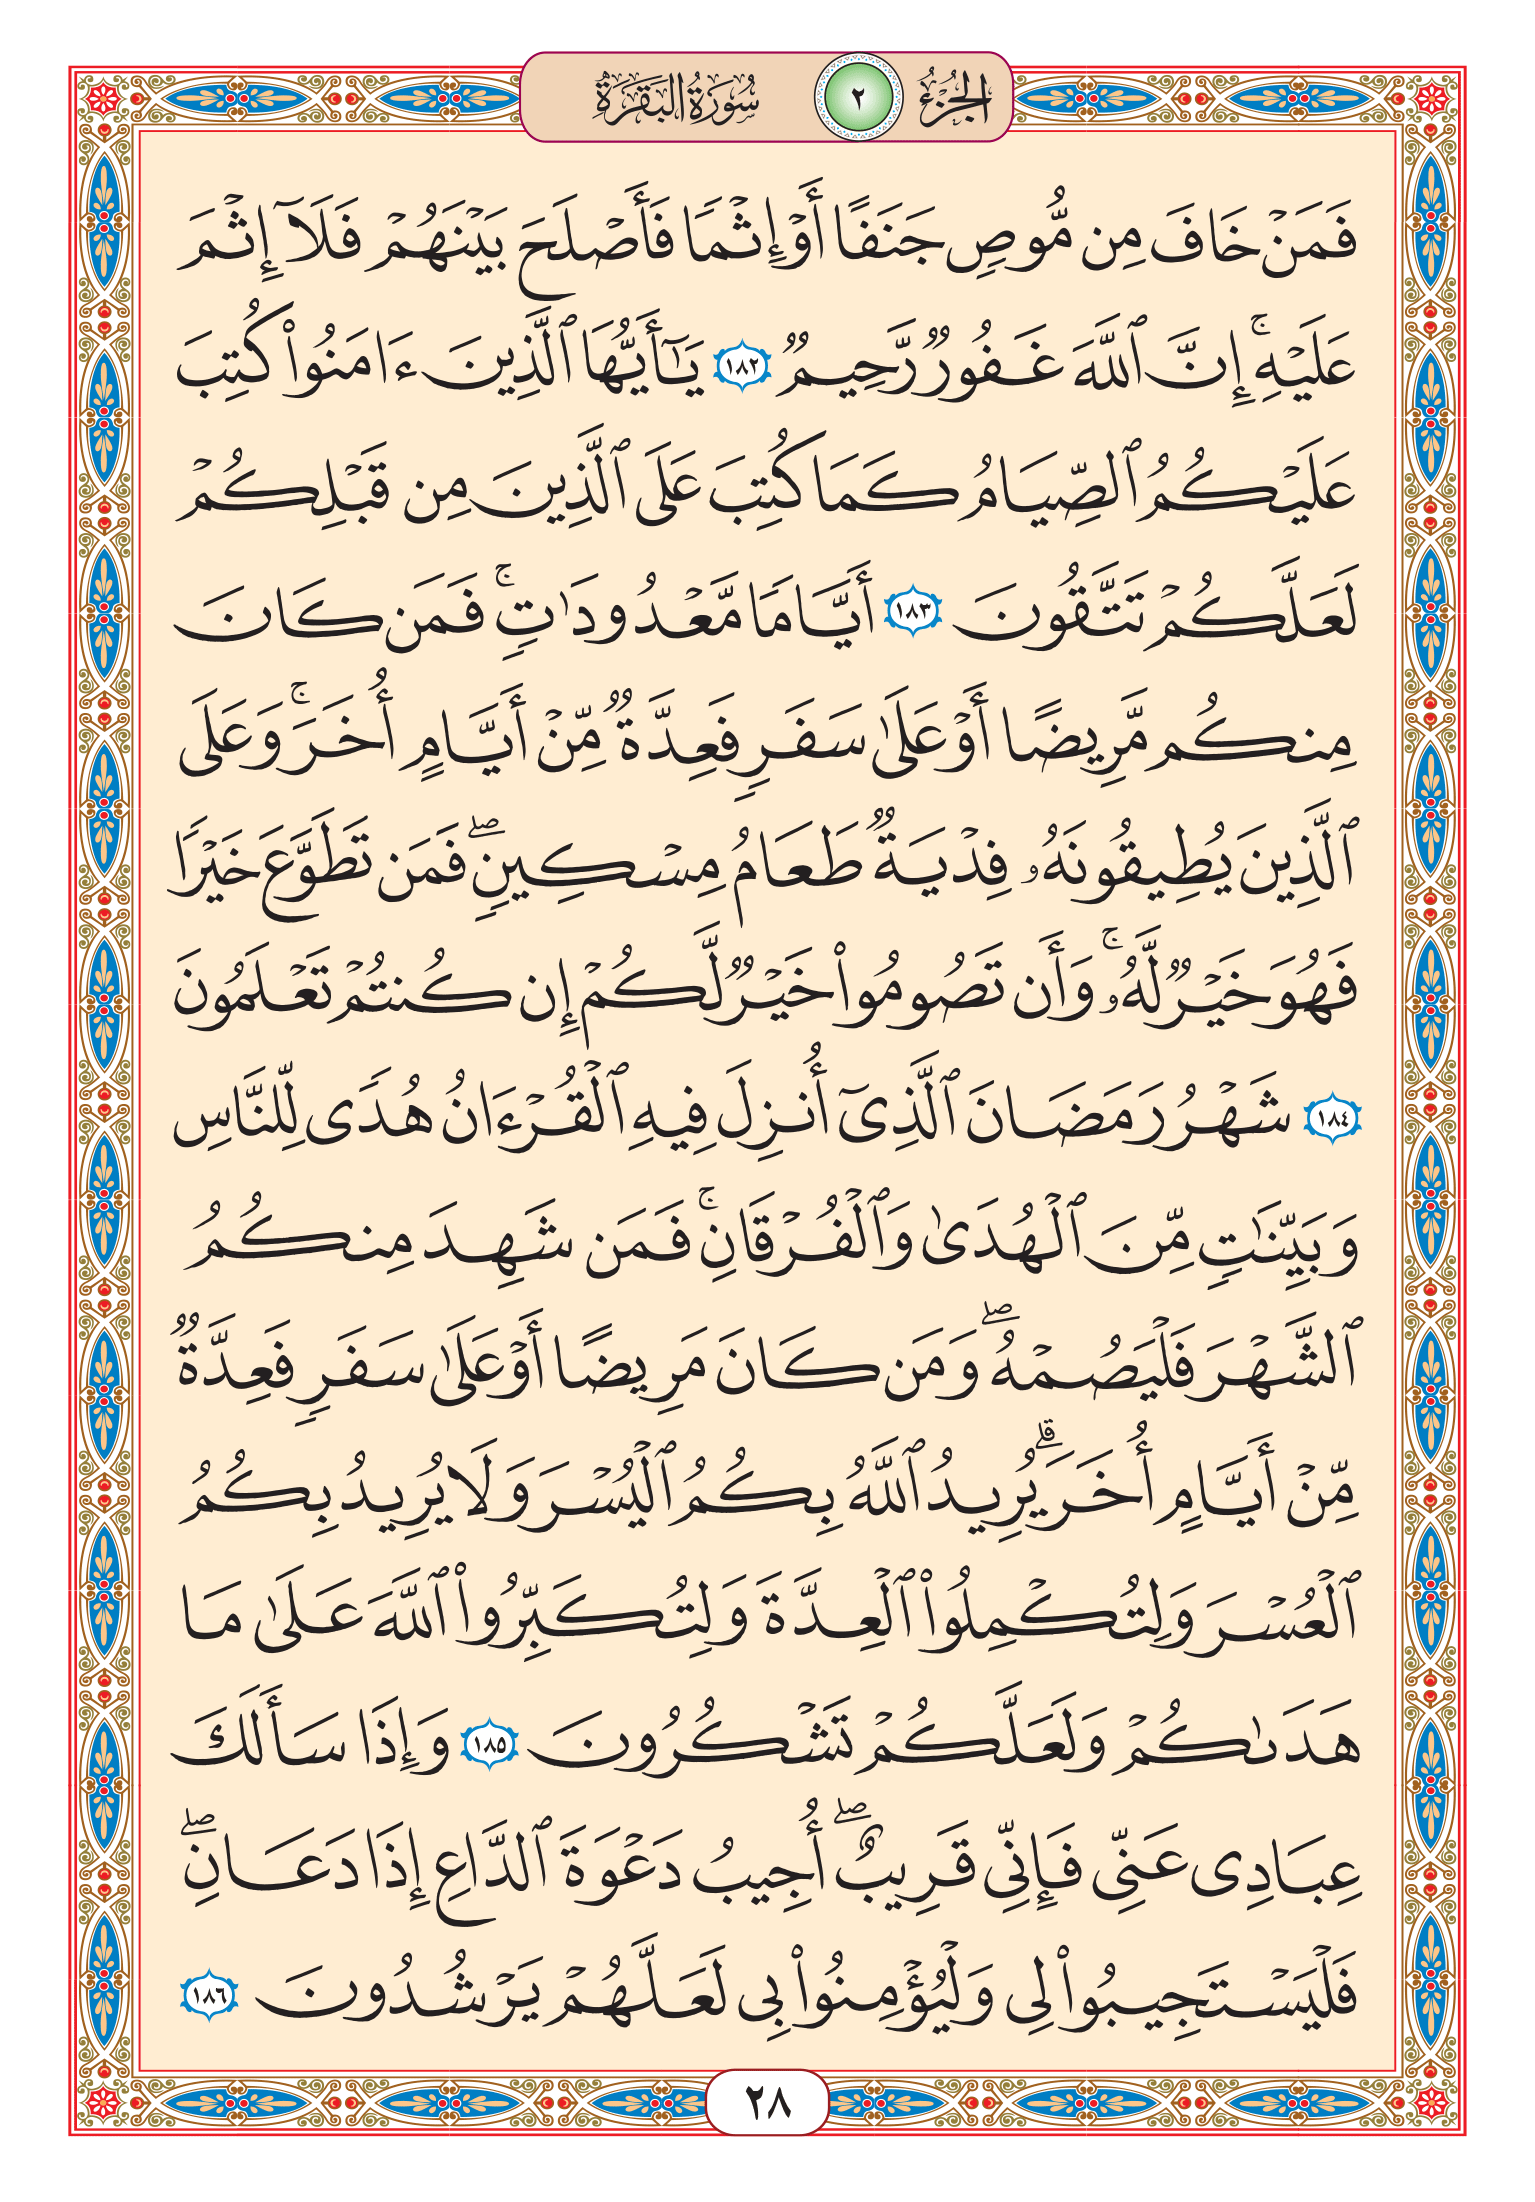 الجزء ٢ سورة البقرة
فَمَنْ خَافَ مِن مُّوصٍ جَنَفًا أَوْ إِثْمًا فَأَصْلَحَ بَيْنَهُمْ فَلَآ إِثْمَ
عَلَيْهِ ۚ إِنَّ ٱللَّهَ غَفُورٌ رَّحِيمٌ ١٨٢ يَٰٓأَيُّهَا ٱلَّذِينَ ءَامَنُوا۟ كُتِبَ
عَلَيْكُمُ ٱلصِّيَامُ كَمَا كُتِبَ عَلَى ٱلَّذِينَ مِن قَبْلِكُمْ
لَعَلَّكُمْ تَتَّقُونَ ١٨٣ أَيَّامًا مَّعْدُودَٰتٍ ۚ فَمَن كَانَ
مِنكُم مَّرِيضًا أَوْ عَلَىٰ سَفَرٍ فَعِدَّةٌ مِّنْ أَيَّامٍ أُخَرَ ۚ وَعَلَى
ٱلَّذِينَ يُطِيقُونَهُۥ فِدْيَةٌ طَعَامُ مِسْكِينٍ ۖ فَمَن تَطَوَّعَ خَيْرًا
فَهُوَ خَيْرٌ لَّهُۥ ۚ وَأَن تَصُومُوا۟ خَيْرٌ لَّكُمْ إِن كُنتُمْ تَعْلَمُونَ
١٨٤ شَهْرُ رَمَضَانَ ٱلَّذِىٓ أُنزِلَ فِيهِ ٱلْقُرْءَانُ هُدًى لِّلنَّاسِ
وَبَيِّنَٰتٍ مِّنَ ٱلْهُدَىٰ وَٱلْفُرْقَانِ ۚ فَمَن شَهِدَ مِنكُمُ
ٱلشَّهْرَ فَلْيَصُمْهُ ۖ وَمَن كَانَ مَرِيضًا أَوْ عَلَىٰ سَفَرٍ فَعِدَّةٌ
مِّنْ أَيَّامٍ أُخَرَ ۗ يُرِيدُ ٱللَّهُ بِكُمُ ٱلْيُسْرَ وَلَا يُرِيدُ بِكُمُ
ٱلْعُسْرَ وَلِتُكْمِلُوا۟ ٱلْعِدَّةَ وَلِتُكَبِّرُوا۟ ٱللَّهَ عَلَىٰ مَا
هَدَىٰكُمْ وَلَعَلَّكُمْ تَشْكُرُونَ ١٨٥ وَإِذَا سَأَلَكَ
عِبَادِى عَنِّى فَإِنِّى قَرِيبٌ ۖ أُجِيبُ دَعْوَةَ ٱلدَّاعِ إِذَا دَعَانِ ۖ
فَلْيَسْتَجِيبُوا۟ لِى وَلْيُؤْمِنُوا۟ بِى لَعَلَّهُمْ يَرْشُدُونَ ١٨٦
٢٨